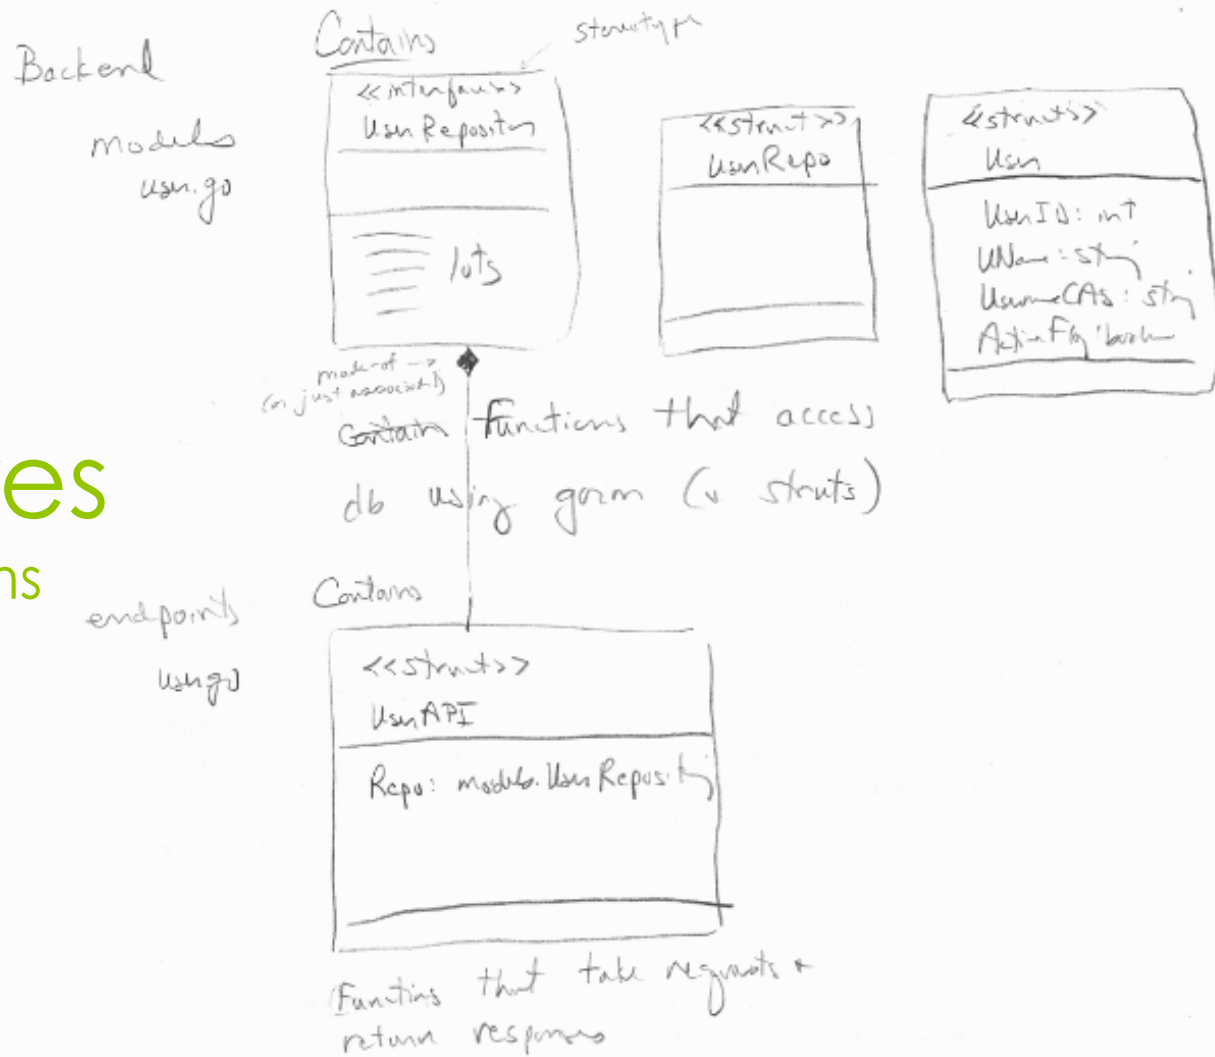 Backend
models
user.go
Contains
stereotype
<<interface>>
UserRepository
lots
<<struct>>
UserRepo
<<struct>>
User
UserID: int
UName: string
UsernameCAS: string
ActiveFlg: boolean
made-of →
(or just associated)
Contain Functions that access
db using gorm (v structs)
es
ns
endpoints
user.go
Contains
<<struct>>
UserAPI
Repo: models.UserRepository
Functions that take requests +
return responses